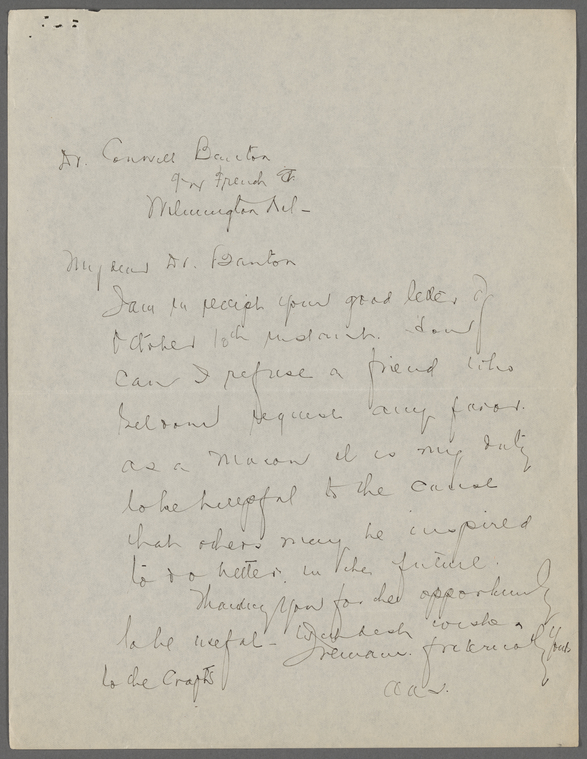 Dr. Conwell Banton
French St
Wilmington Del -
My dear Dr. Banton
I am in receipt your good letter of
October 18th instant. How
can I refuse a friend who
seldom request any favor.
as a Mason it is my duty
to be helpful to the cause
that others may be inspired
to do better in the future.
Thanking you for the opportunity
to be useful - With best wishes
to the Craft
I remain fraternally yours
AAS.